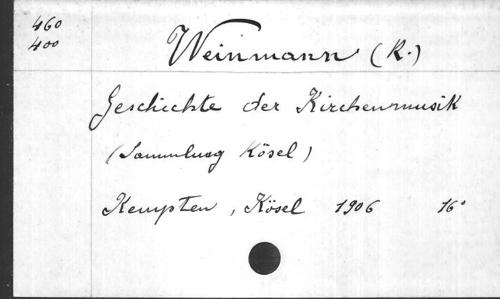 460
400
Weinmann (K.)
Geschichte der Kirchenmusik
(Sammlung Kösel)
Kempten, Kösel 1906 16°